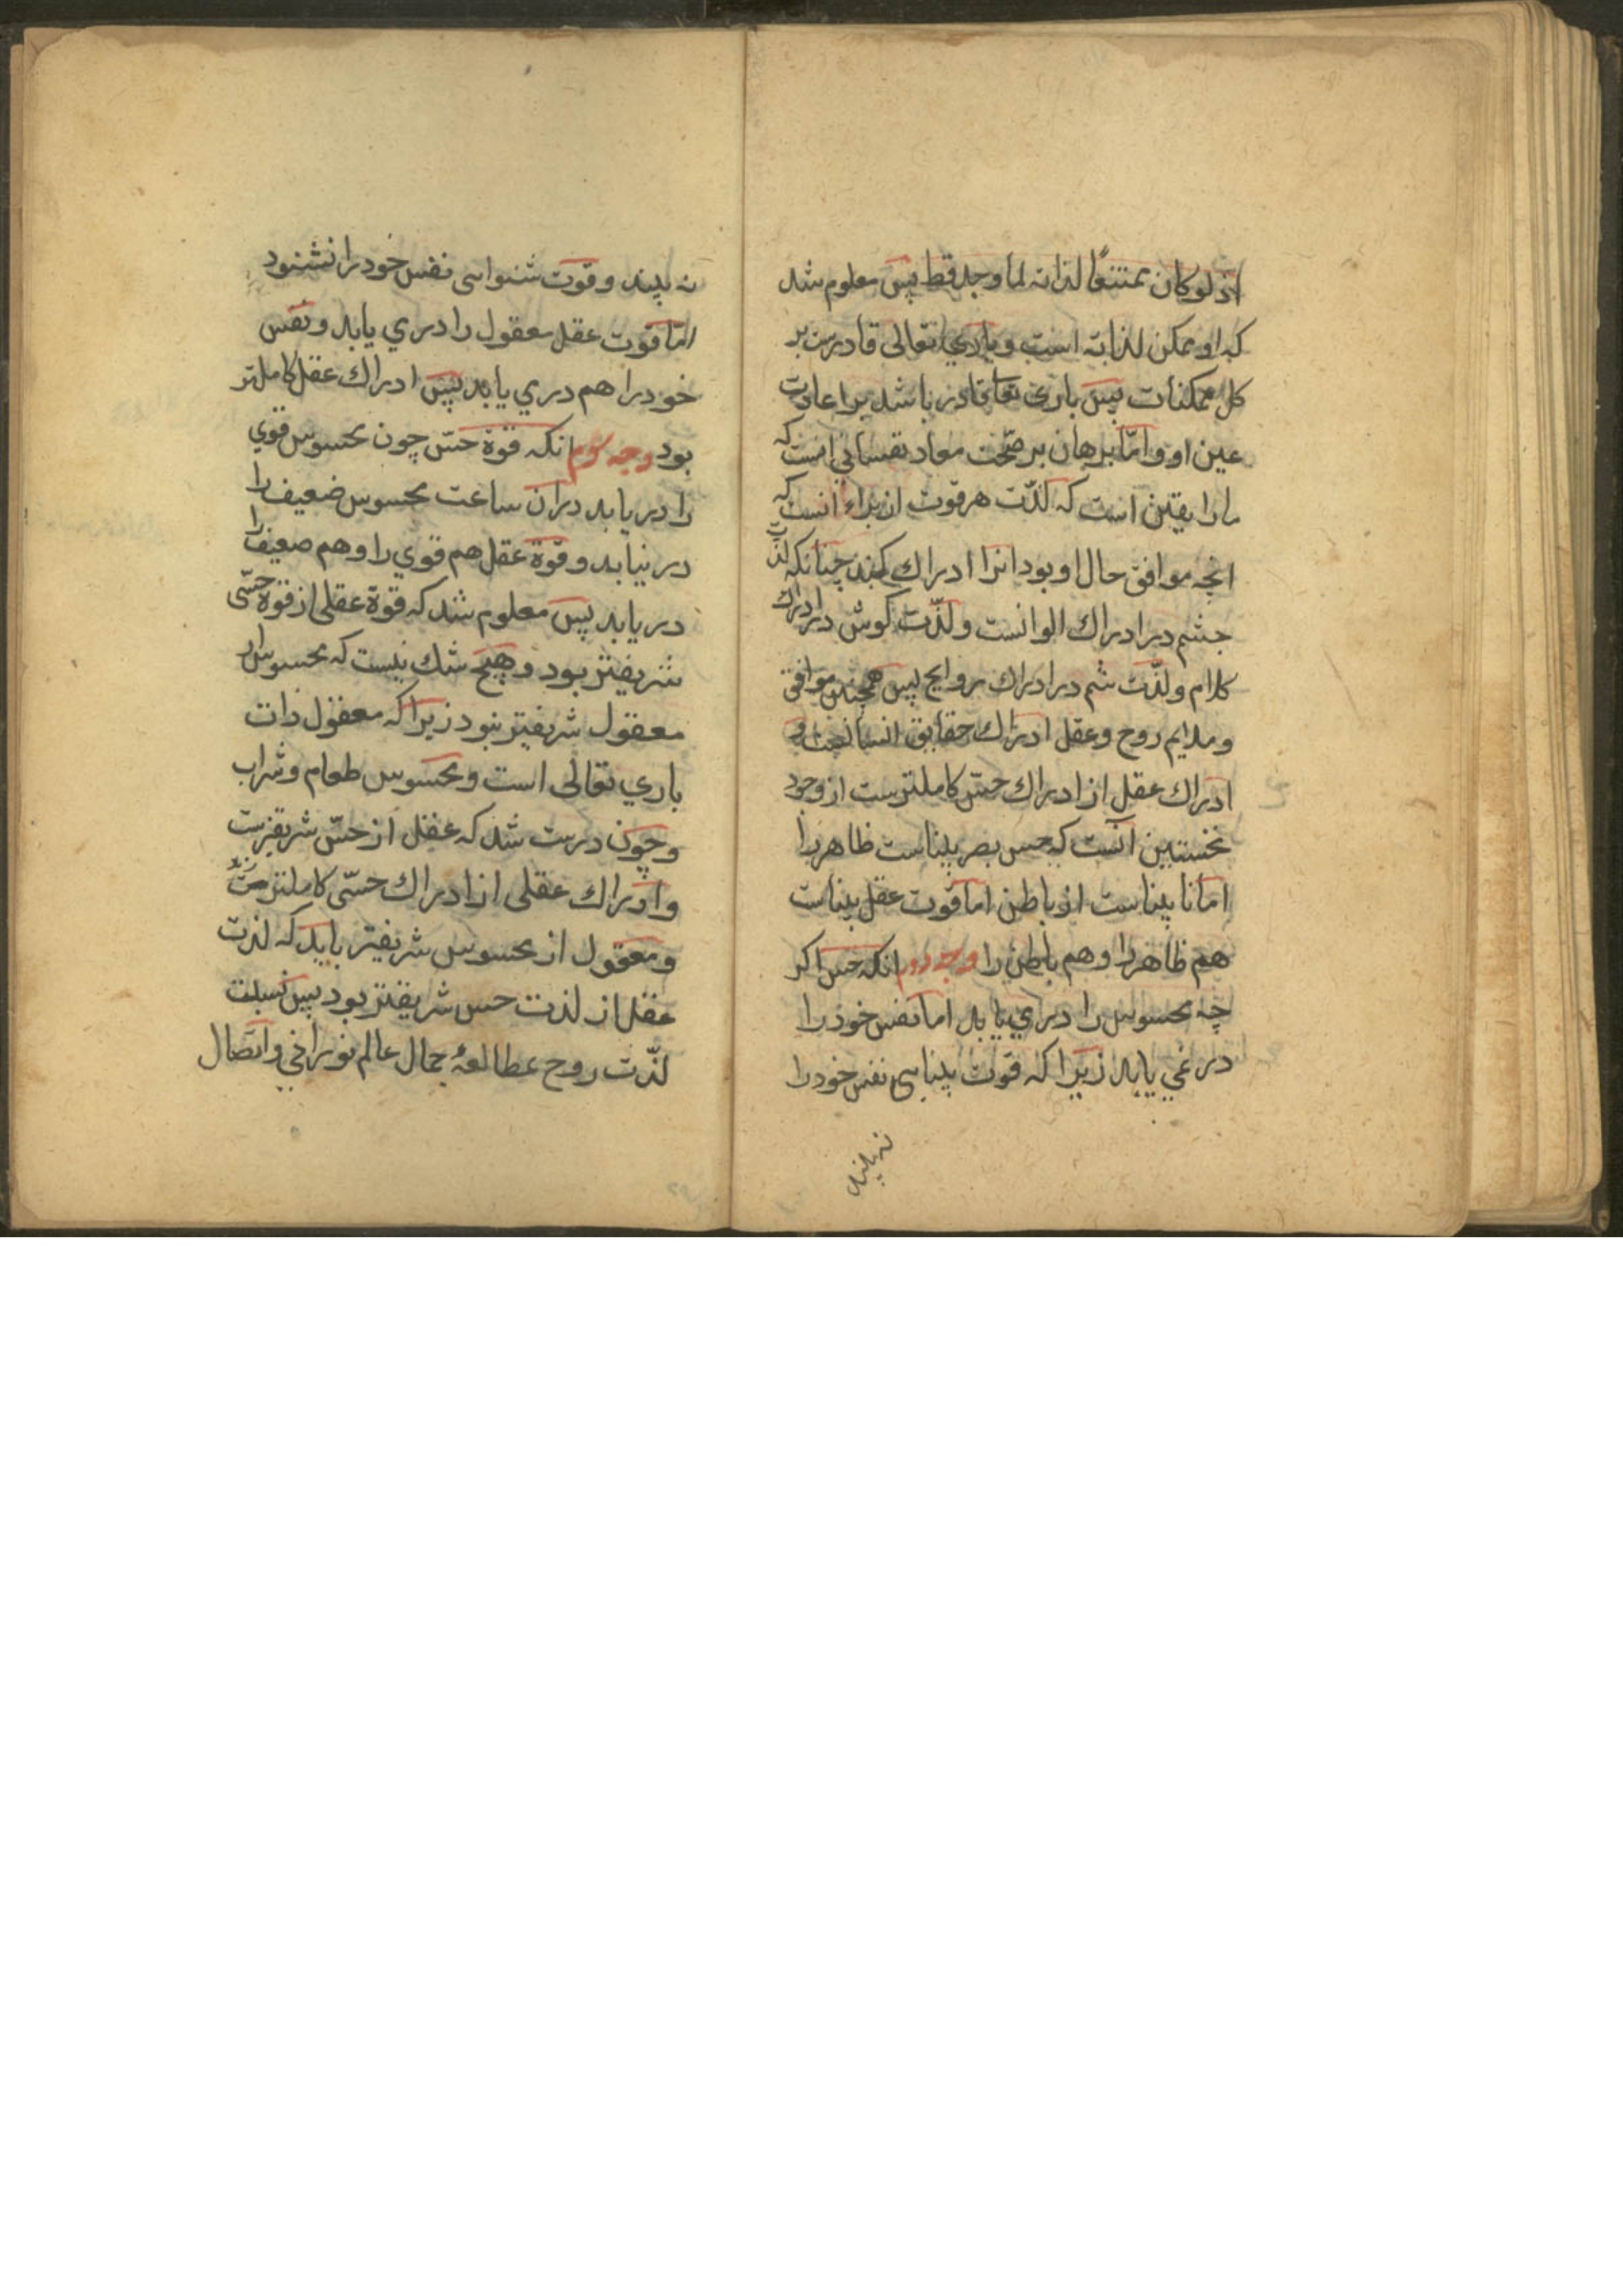 اذ لو کان ممتنعًا لذاته لما وجد قط پس معلوم شد
که او ممکن لذاته است و باری تعالی قادرست بر
کل ممکنات پس باری تعا قادر باشد بر اعادت
عین او و امّا برهان بر صحّت معاد نفسانی انست که
ما را یقین است که لذّت هر قوت از براء انست که
انچه موافق حال او بود انرا ادراك کند چنانکه لذّت
چشم در ادراك الوانست ولذّت کوش در ادراك
کلام ولذّت شم در ادراك روایح پس همچنین موافق
و ملایم روح وعقل ادراك حقایق و
ادراك عقل از ادراك حسّ کاملترست از وجود
نخستین آنست که حس بصر بیناست ظاهر را
اما نا بیناست از باطن اما قوّت عقل بیناست
هم ظاهر را و هم باطن را وجه دوم انکه حس اکر
چه محسوس را درمی یابد اما نفس خود را
در نمی یابد زیرا که قوت بینایی نفس خود را
نه بیند
نه بیند و قوّت شنوایی نفس خود را نشنود
امّا قوت عقل معقول را درمی یابد و نفس
خود را هم درمی یابد پس ادراك عقل کاملتر
بود وجه سوم انکه قوة حسّ چون محسوس قوی
را دریابد دران ساعت محسوس ضعیف را
درنیابد و قوّة عقل هم قوی را وهم ضعیف را
دریابد پس معلوم شد که قوة عقلی از قوة حسّی
شریفتر بود و هیچ شك نیست که محسوس از
معقول شریفتر نبود زیرا که معقول ذات
باری تعالی است و محسوس طعام و شراب
و چون درست شد که عقل از حسّ شریفترست
و ادراك عقلی از ادراك حسّی کاملترست
و معقول از محسوس شریفتر باید که لذت
عقل از لذت حس شریفتر بود پس نسبت
لذّت روح بمطالعۀ جمال عالم نورانی و اتّصال